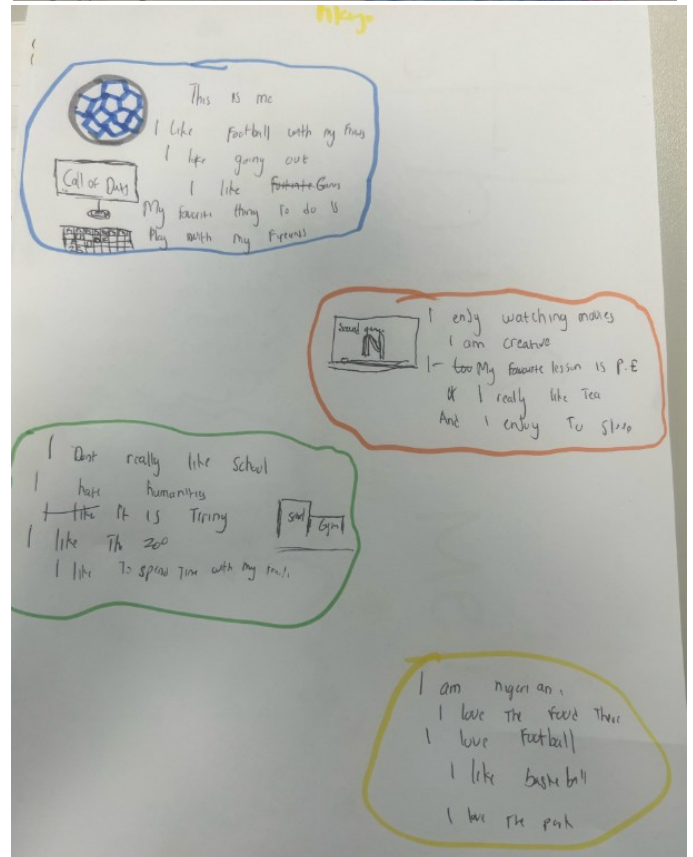 This is me
I like Football with my
I like going out
Call of Duty
I like Games
My favorite thing To do is
Play with my
I enjoy watching movies
I am creative
My favourite lesson is P.E
I really like Tea
And I enjoy To
I Dont really like School
I hate humanities
It is Tiring
Gym
I like The zoo
I like To spend Time with my
I am
I love The food There
I love Football
I like
I love The park